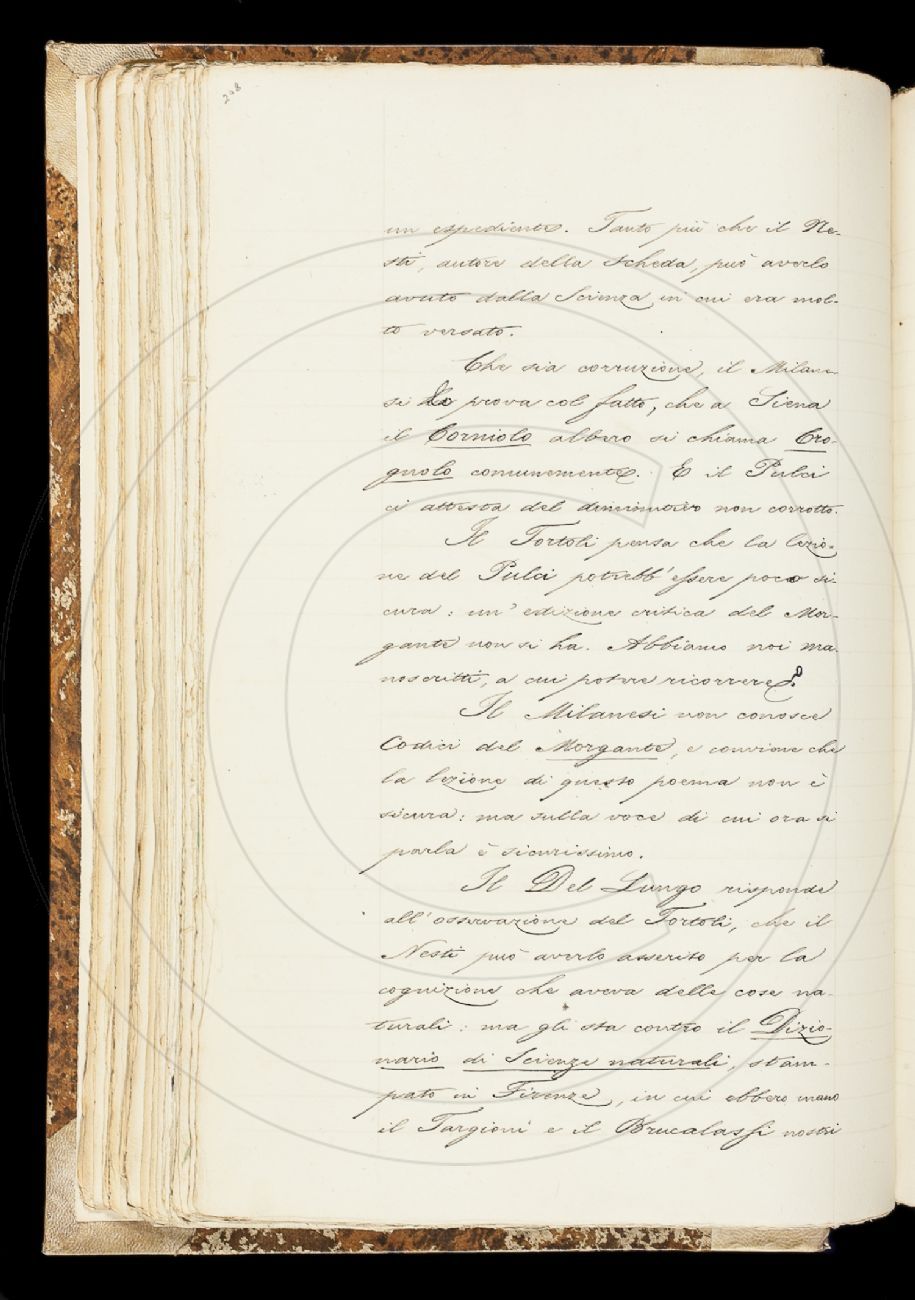 208
un espediente. Tanto più che il Ne-
sti, autore della scheda, può averlo
avuto dalla Scienza, in cui era mol-
to versato.
Che sia corruzione, il Milane-
si lo prova col fatto, che a Siena
il Corniolo albero si chiama Cro-
gnolo comunemente. E il Pulci
ci attesta del diminutivo non corrotto.
Il Tortoli pensa che la lezio-
ne del Pulci potrebb'essere poco si-
cura: un'edizione critica del Mor-
gante non si ha. Abbiamo noi ma
noscritti, a cui potere ricorrere?
Il Milanesi non conosce
Codici del Morgante, e conviene che
la lezione di questo poema non è
sicura: ma sulla voce di cui ora si
parla è sicurissimo.
Il Del Lungo risponde
all'osservazione del Tortoli, che il
Nesti può averlo asserito per la
cognizione che aveva delle cose na-
turali: ma gli sta contro il Dizio-
nario di Scienze naturali, stam-
pato in Firenze, in cui ebbero mano
il Targioni e il Brucalassi nostri